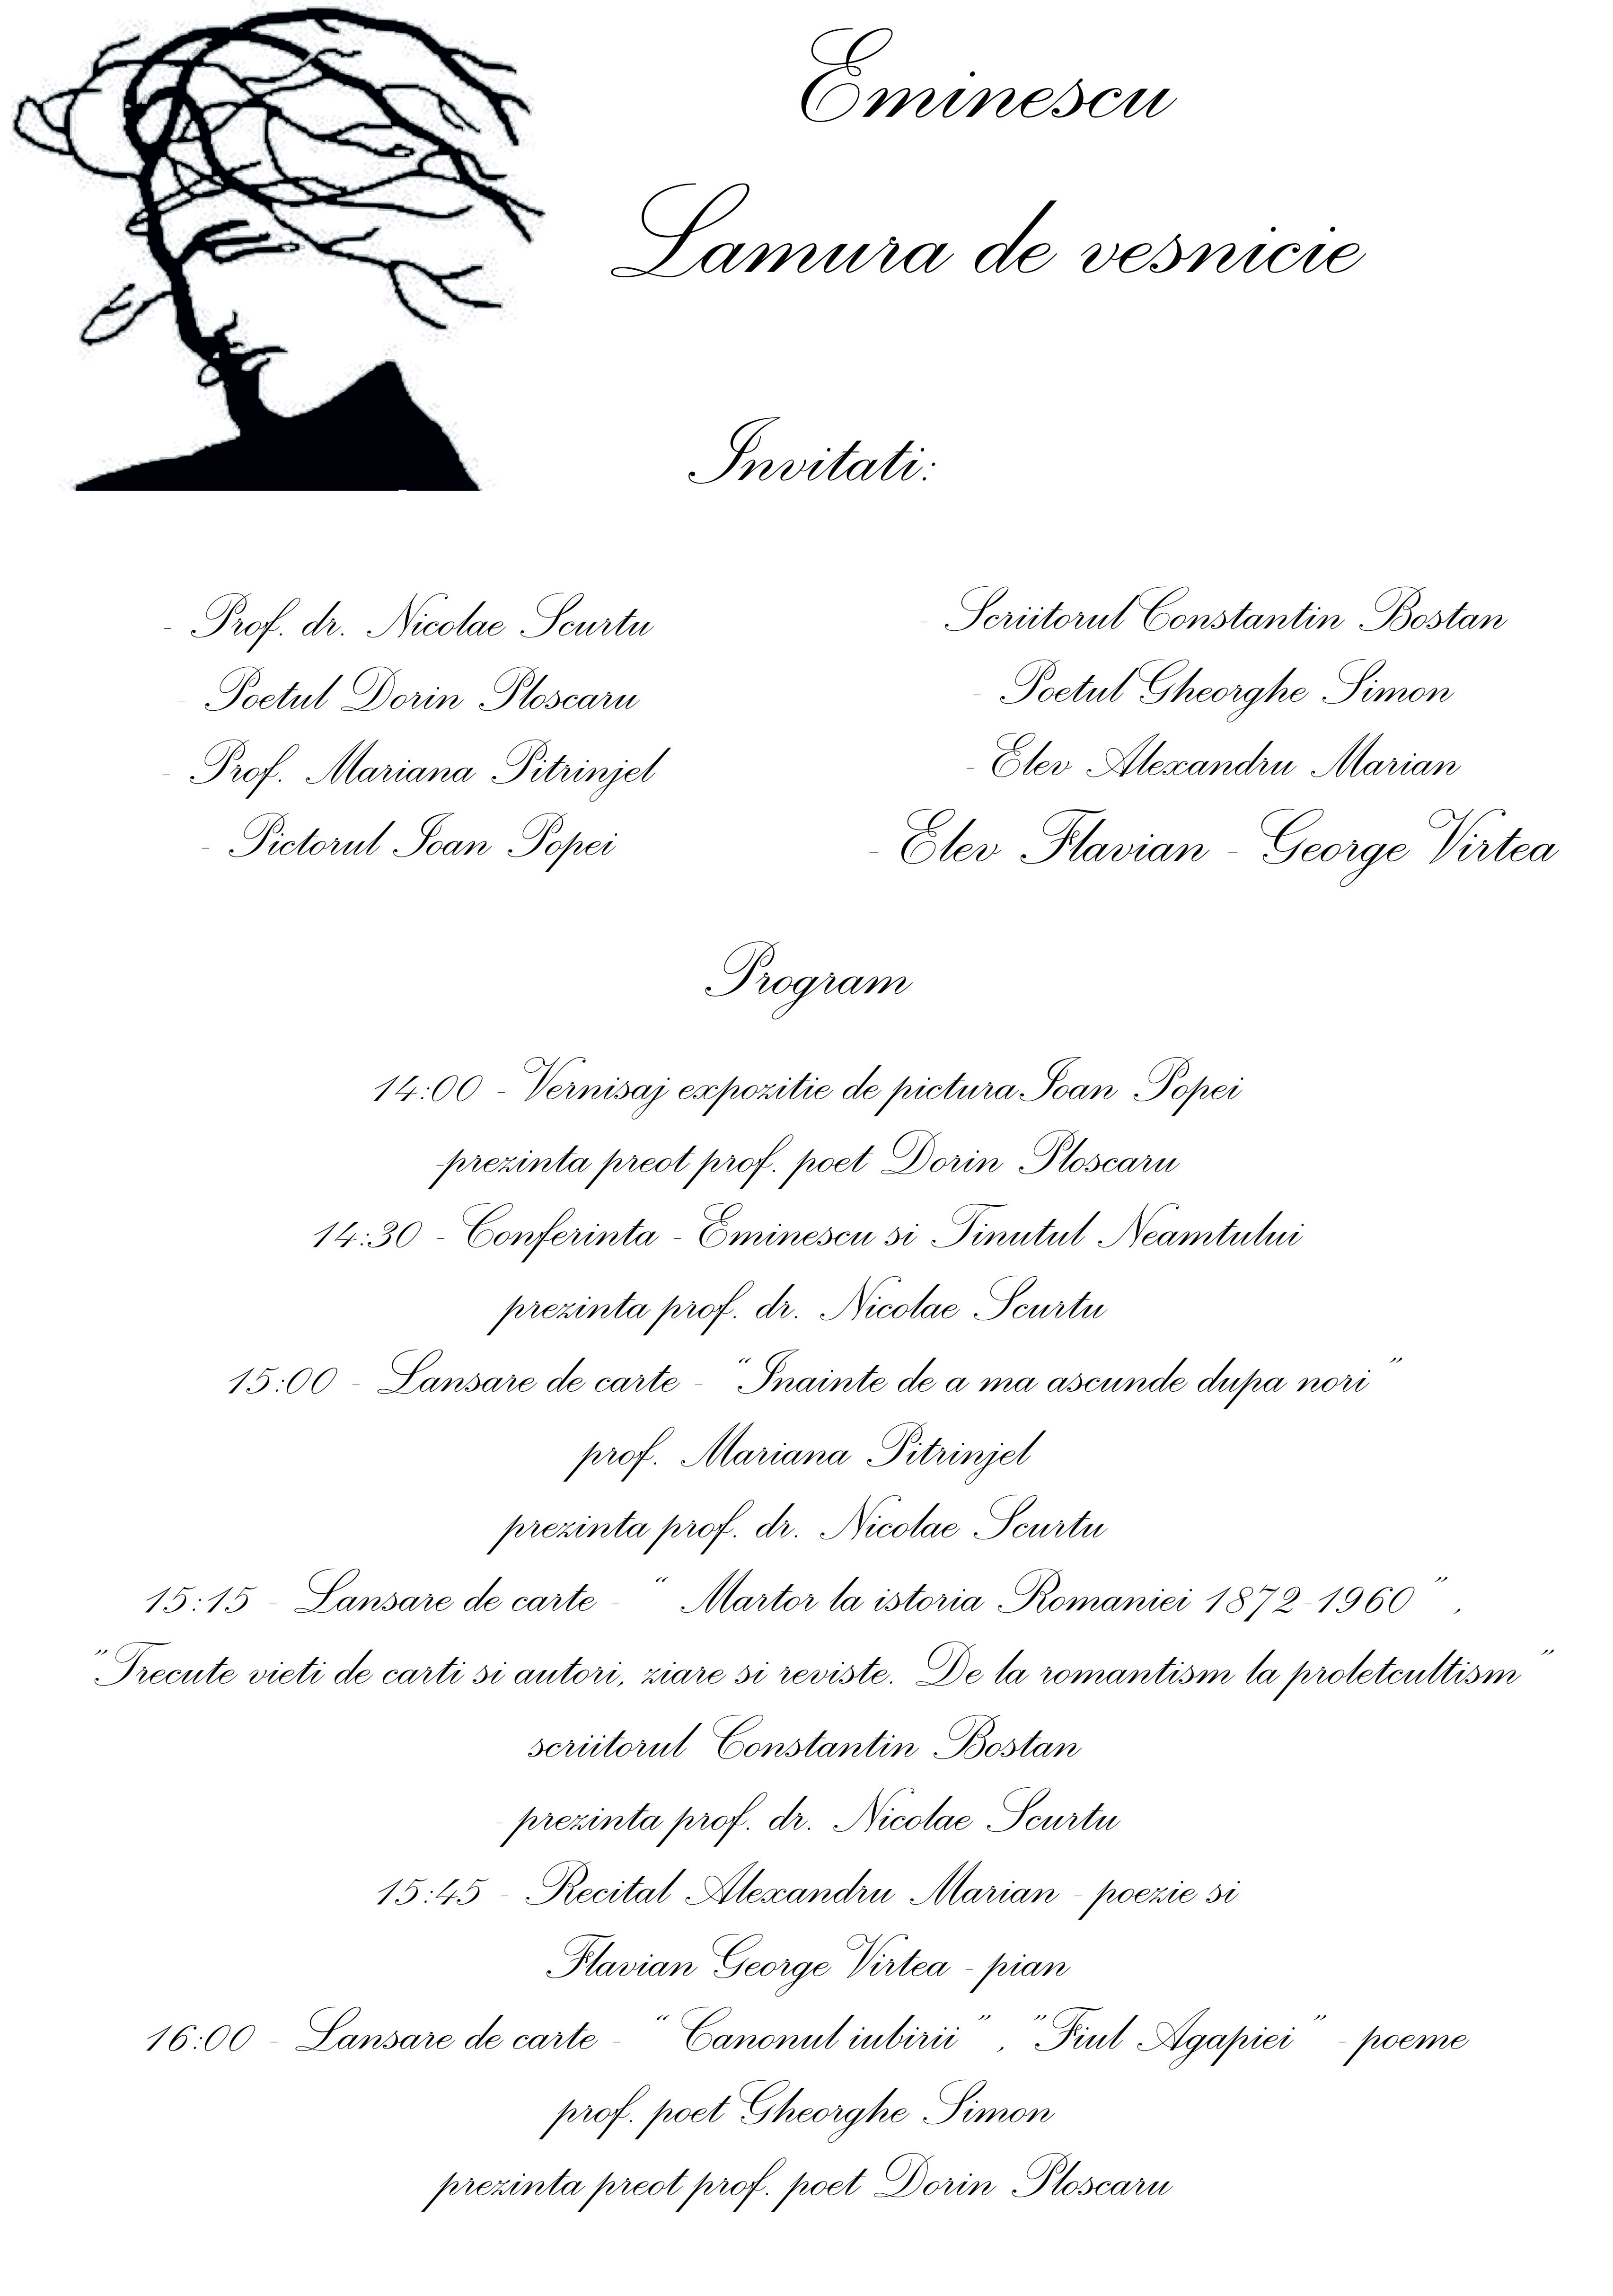 Eminescu
Lamura de vesnicie
Invitati:
- Prof. dr. Nicolae Scurtu
- Poetul Dorin Ploscaru
- Prof. Mariana Pitrinjel
- Pictorul Ioan Popei
- Scriitorul Constantin Bostan
- Poetul Gheorghe Simon
- Elev Alexandru Marian
- Elev Flavian - George Virtea
Program
14:00 - Vernisaj expozitie de pictura Ioan Popei
prezinta preot prof. poet Dorin Ploscaru
14:30 - Conferinta - Eminescu si Tinutul Neamtului
prezinta prof. dr. Nicolae Scurtu
15:00 - Lansare de carte - “Inainte de a ma ascunde dupa nori”
prof. Mariana Pitrinjel
prezinta prof. dr. Nicolae Scurtu
15:15 - Lansare de carte - “ Martor la istoria Romaniei 1872-1960 ” ,
”Trecute vieti de carti si autori, ziare si reviste. De la romantism la proletcultism ”
scriitorul Constantin Bostan
- prezinta prof. dr. Nicolae Scurtu
15:45 - Recital Alexandru Marian - poezie si
Flavian George Virtea - pian
16:00 - Lansare de carte - “ Canonul iubirii ” , ”Fiul Agapiei ” - poeme
prof. poet Gheorghe Simon
prezinta preot prof. poet Dorin Ploscaru